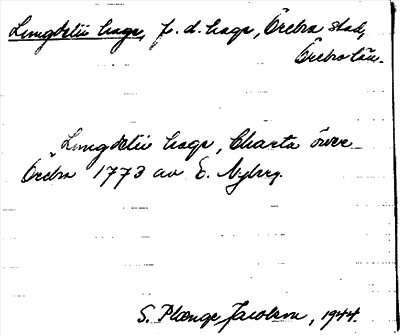 Lungdelii hage, f. d. hage, Örebro stad,
Örebro län.
"Lungdelii hage, Charta över
Örebro 1773 av E. Nyberg.
S. Plænge Jacobson, 1944.